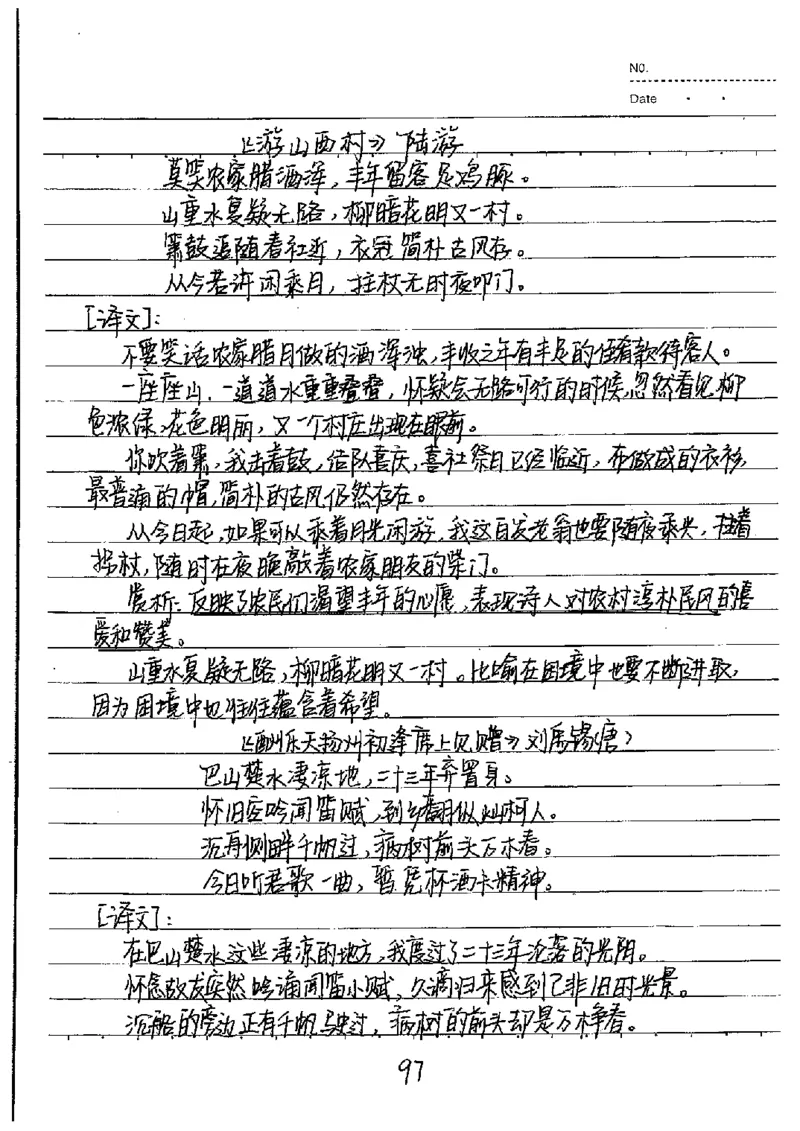 NO.
Date
《游山西村》陆游
莫笑农家腊酒浑，丰年留客足鸡豚。
山重水复疑无路，柳暗花明又一村。
箫鼓追随春社近，衣冠简朴古风存。
从今若许闲乘月，拄杖无时夜叩门。
[译文]：
不要笑话农家腊月做的酒浑浊，丰收之年有丰足的佳肴款待客人。
一座座山、一道道水重重叠叠，怀疑会无路可行的时候，忽然看见柳
色浓绿，花色明丽，又一个村庄出现在眼前。
你吹着箫，我击着鼓，结队喜庆，喜社祭日已经临近，布做成的衣衫，
最普通的帽，简朴的古风仍然存在。
从今日起，如果可以乘着月光闲游，我这白发老翁也要随夜乘兴，拄着
拐杖，随时在夜晚敲着农家朋友的柴门。
赏析：反映了农民们渴望丰年的心愿，表现诗人对农村淳朴民风的喜
爱和赞美。
山重水复疑无路，柳暗花明又一村。比喻在困境中也要不断进取，
因为困境中也往往蕴含着希望。
《酬乐天扬州初逢席上见赠》刘禹锡（唐）
巴山楚水凄凉地，二十三年弃置身。
怀旧空吟闻笛赋，到乡翻似烂柯人。
沉舟侧畔千帆过，病树前头万木春。
今日听君歌一曲，暂凭杯酒长精神。
[译文]：
在巴山楚水这些凄凉的地方，我度过了二十三年沦落的光阴。
怀念故友突然吟诵闻笛小赋，久谪归来感到已非旧时光景。
沉船的旁边正有千帆驶过，病树的前头却是万木争春。
97